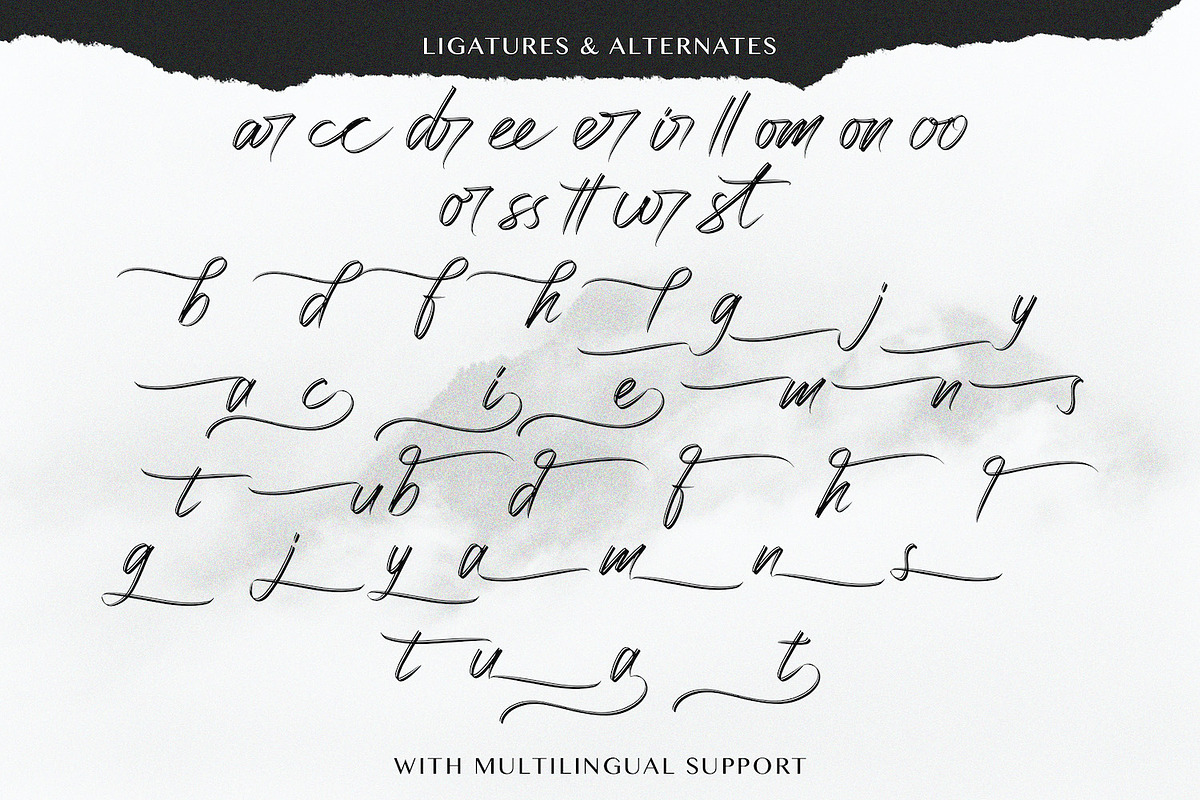 LIGATURES & ALTERNATES
ar cc dr ee er ir ll om on oo
or ss tt wr st
b d f h l g j y
a c i e m n s
t u b d f h l
g j y a m n s
t u a t
WITH MULTILINGUAL SUPPORT